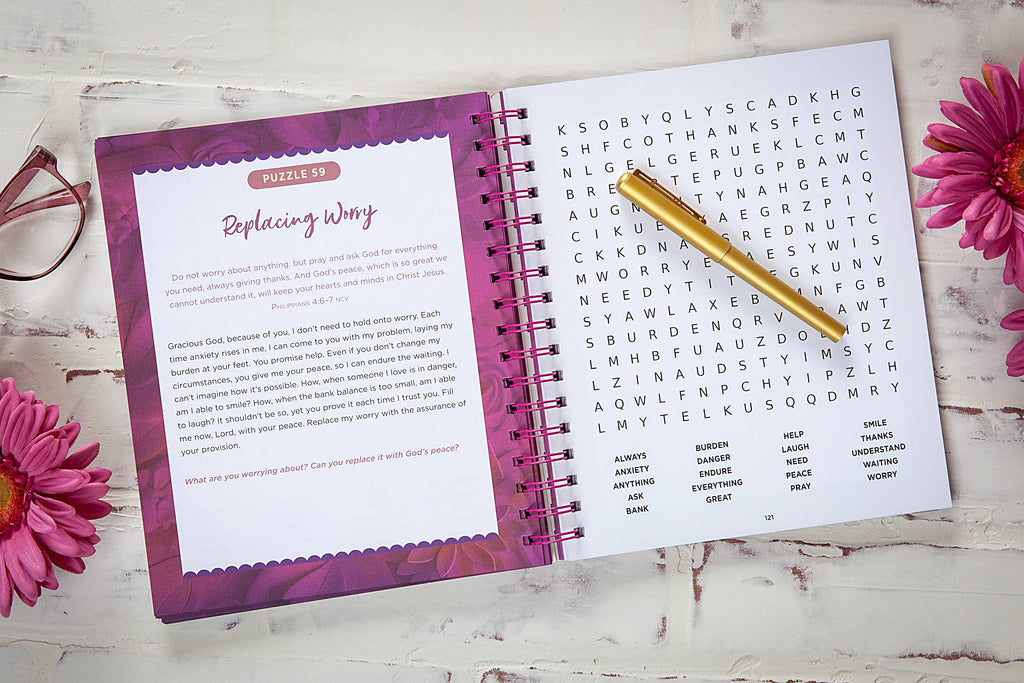 PUZZLE 59
Replacing Worry
Do not worry about anything, but pray and ask God for everything
you need, always giving thanks. And God's peace, which is so great we
cannot understand it, will keep your hearts and minds in Christ Jesus.
Philippians 4:6–7 NCV
Gracious God, because of you, I don't need to hold onto worry. Each
time anxiety rises in me, I can come to you with my problem, laying my
burden at your feet. You promise help. Even if you don't change my
circumstances, you give me your peace, so I can endure the waiting. I
can't imagine how it's possible. How, when someone I love is in danger,
am I able to smile? How, when the bank balance is too small, am I able
to laugh? It shouldn't be so, yet you prove it each time I trust you. Fill
me now, Lord, with your peace. Replace my worry with the assurance of
your provision.
What are you worrying about? Can you replace it with God's peace?
K S O B Y Q L Y S C A D K H G
S H F C O T H A N K S F E C M
N L G E L G E R U E K L C M T
B R E T E P U G P B A W C
A U G N T Y N A H G E A Q
C I K U E A E G R Z P I Y
C K K D N A S R E D N U T C
M W O R R Y E A E S Y W I S
N E E D Y T I T E G K U N V
S Y A W L A X E B M N F G B
S B U R D E N Q R V A W T
L M H B F U A U Z D O H D Z
L Z I N A U D S T Y I M S Y C
A Q W L F N P C H Y I P Z L H
L M Y T E L K U S Q Q D M R Y
ALWAYS
ANXIETY
ANYTHING
ASK
BANK
BURDEN
DANGER
ENDURE
EVERYTHING
GREAT
HELP
LAUGH
NEED
PEACE
PRAY
SMILE
THANKS
UNDERSTAND
WAITING
WORRY
121